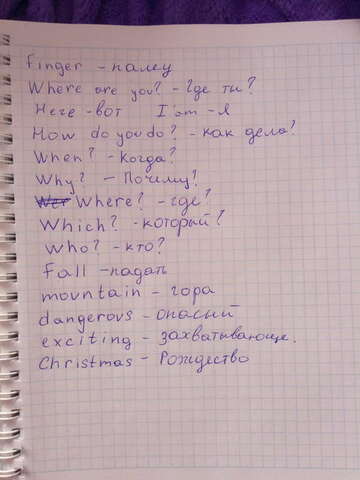 Finger - палец
Where are you? - Где ты?
Here - вот I am - Я
How do you do? - как дела?
When? - Когда?
Why? - Почему?
Where? - где?
Which? - который?
Who? - кто?
Fall - падать
mountain - гора
dangerous - опасный
exciting - захватывающе.
Christmas - Рождество